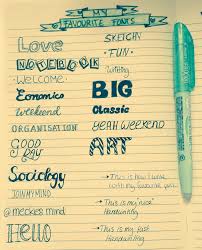 MY
FAVOURITE FONTS
Love
NOTEBOOK
WELCOME
Economics
Weekend
ORGANISATION
GOOD
DAY
Sociology
JOINMYMIND
@meckesmind
HELLO
SKETCHY
FUN
Writing
BIG
Classic
YEAH WEEKEND
ART
→ This is how I write
with my favourite pen
→ This is my "nice"
handwriting
→ This is my fast
handwriting